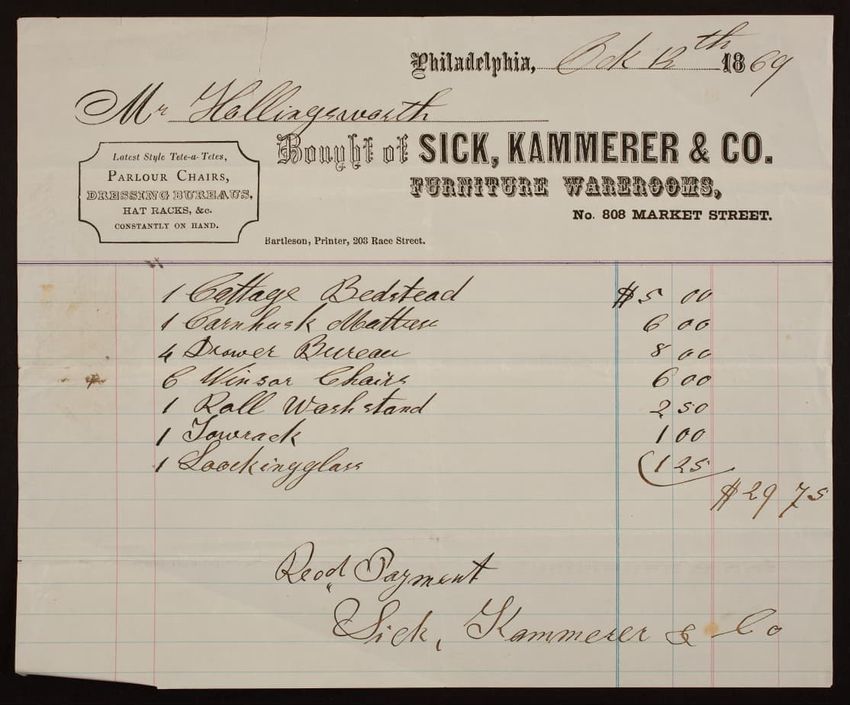 Philadelphia, Oct 12th 1869
Mr Hollingsworth
Bought of SICK, KAMMERER & CO.
FURNITURE WAREROOMS,
No. 808 MARKET STREET.
Latest Style Tete-a-Tetes,
PARLOUR CHAIRS,
DRESSING BUREAUS,
HAT RACKS, &c.
CONSTANTLY ON HAND.
Bartleson, Printer, 203 Race Street.
1 Cottage Bedstead $5 00
1 Cornhusk Mattress 6 00
4 Drower Bureau 8 00
6 Winsor Chairs 6 00
1 Roll Washstand 2 50
1 Towrack 1 00
1 Loockingglass 1 25
$29 75
Recd Payment
Sick, Kammerer & Co